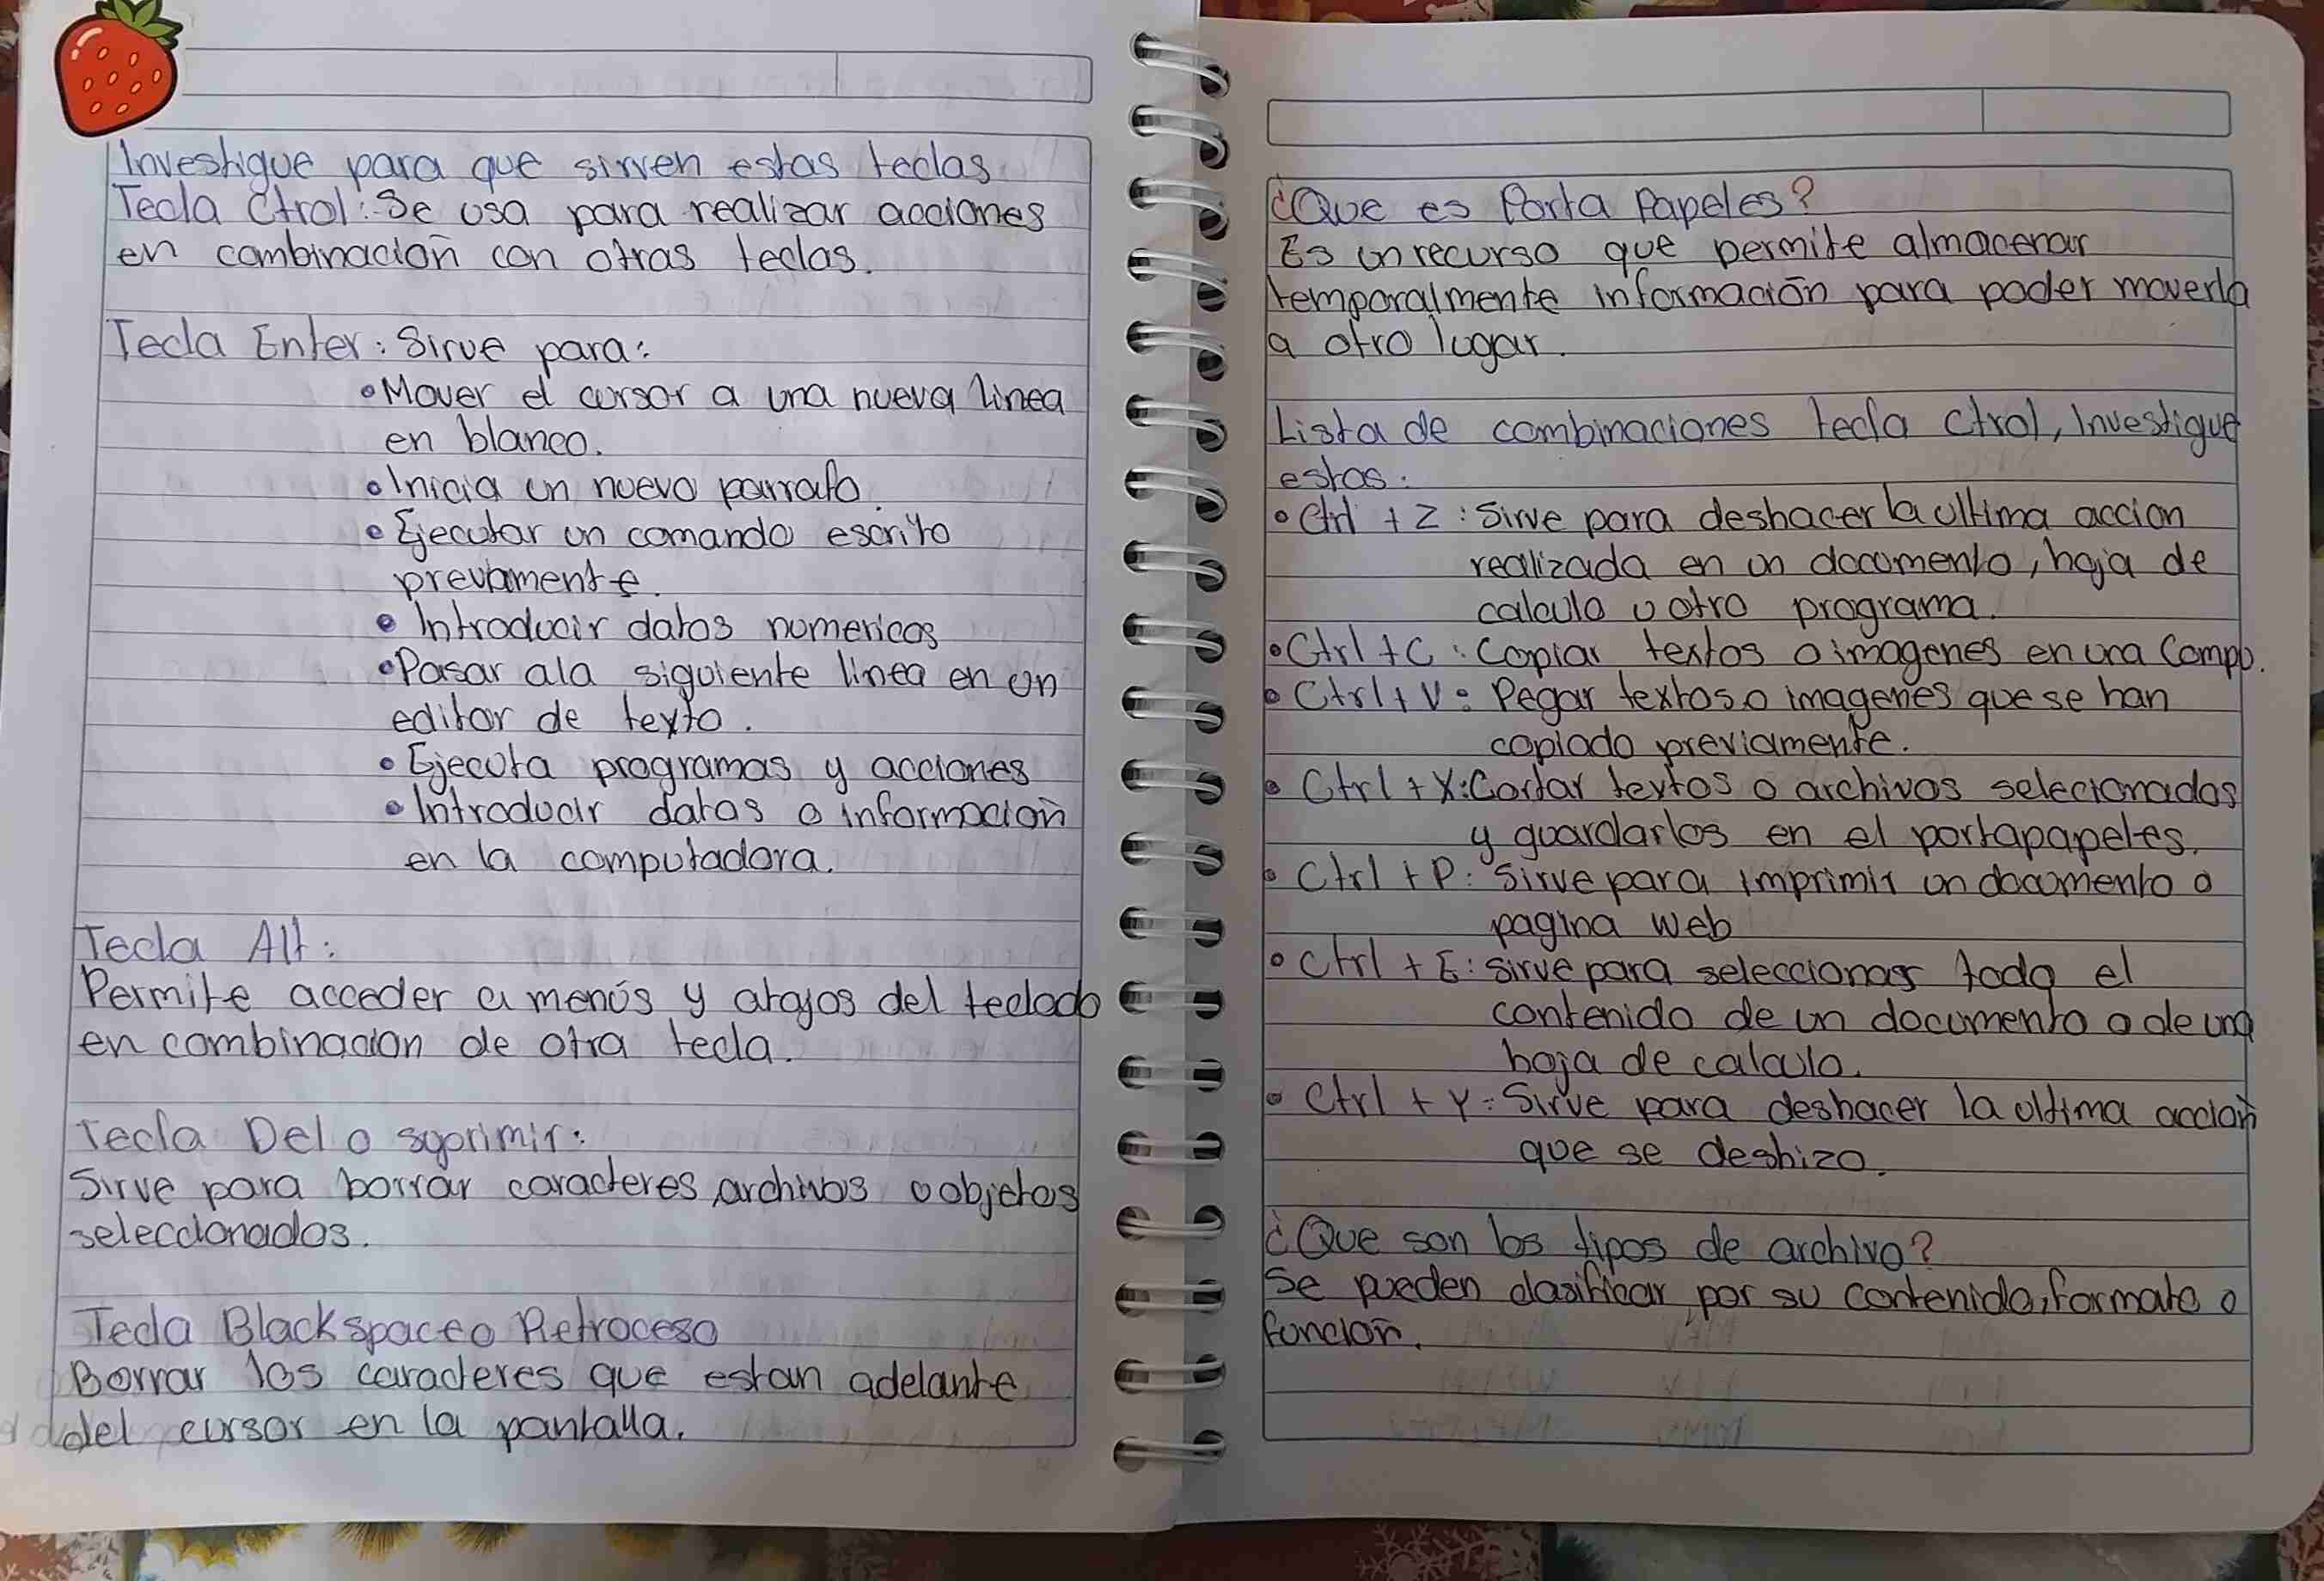 Investigue para que sirven estas teclas
Tecla Ctrol: Se usa para realizar acciones
en combinación con otras teclas.
Tecla Enter: Sirve para:
• Mover el cursor a una nueva linea
en blanco.
• Inicia un nuevo parrafo.
• Ejecutar un comando escrito
prevamente.
• Introducir datos numericos
• Pasar ala siguiente linea en un
editor de texto.
• Ejecuta programas y acciones
• Introducir datos o información
en la computadora.
Tecla Alt:
Permite acceder a menús y atajos del teclado
en combinacion de otra tecla.
Tecla Del o suprimir:
Sirve para borrar caracteres, archivos o objetos
seleccionados.
Tecla Blackspace o Retroceso
Borrar los caracteres que estan adelante
del cursor en la pantalla.
¿Que es Porta Papeles?
Es un recurso que permite almacenar
temporalmente información para poder moverla
a otro lugar.
Lista de combinaciones tecla Ctrol, Investigue
estas:
• Ctrl + Z: Sirve para deshacer la ultima accion
realizada en un documento, hoja de
calculo u otro programa.
• Ctrl + C: Copiar textos o imagenes en una Compu.
• Ctrl + V: Pegar textos o imagenes que se han
copiado previamente.
• Ctrl + X: Cortar textos o archivos selecionados
y guardarlos en el portapapeles.
• Ctrl + P: Sirve para imprimir un documento o
pagina web
• Ctrl + E: sirve para seleccionar todo el
contenido de un documento o de una
hoja de calculo.
• Ctrl + Y: Sirve para deshacer la ultima acción
que se deshizo.
¿Que son los tipos de archivo?
Se pueden clasificar por su contenido, formato o
función.